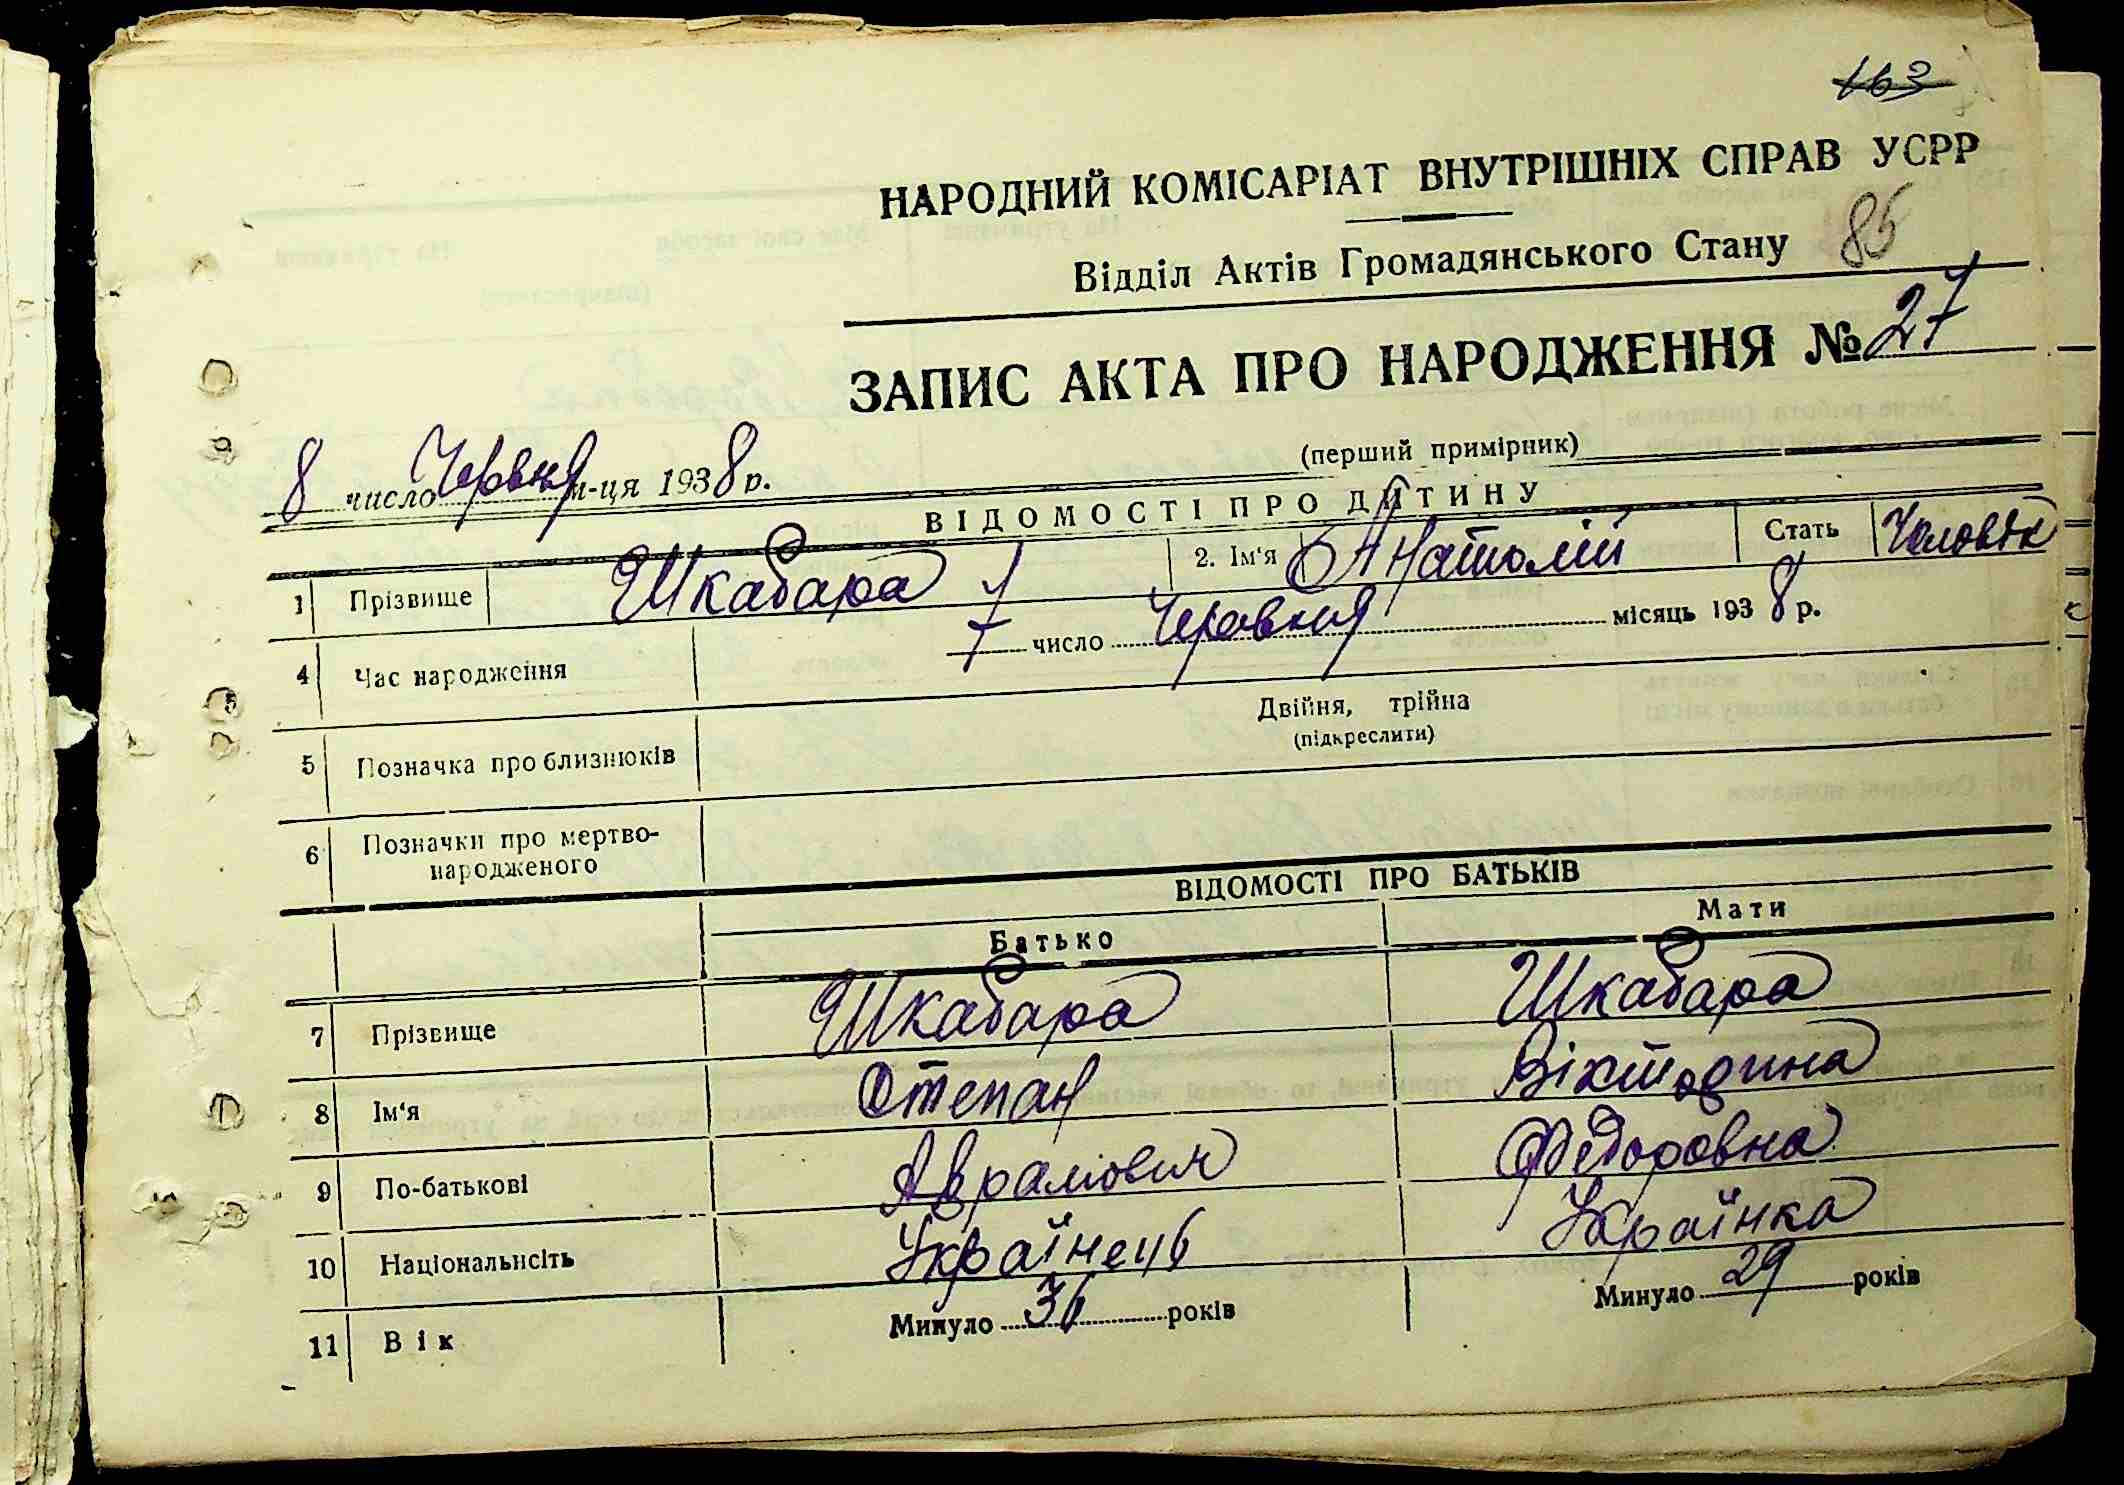 163
НАРОДНИЙ КОМІСАРІАТ ВНУТРІШНІХ СПРАВ УСРР
Відділ Актів Громадянського Стану 85
ЗАПИС АКТА ПРО НАРОДЖЕННЯ № 27
(перший примірник)
8 число Червня м-ця 1938 р.
ВІДОМОСТІ ПРО ДИТИНУ
1 Прізвище Шкабара 2. Ім'я Анатолій Стать Чоловік
4 Час народження 7 число Червня місяць 1938 р.
5 Позначка про близнюків Двійня, трійна
(підкреслити)
6 Позначки про мертво-
народженого
ВІДОМОСТІ ПРО БАТЬКІВ
Батько Мати
7 Прізвище Шкабара Шкабара
8 Ім'я Степан Вікторина
9 По-батькові Аврамович Федоровна
10 Національнсіть Українець Українка
11 Вік Минуло 36 років Минуло 29 років